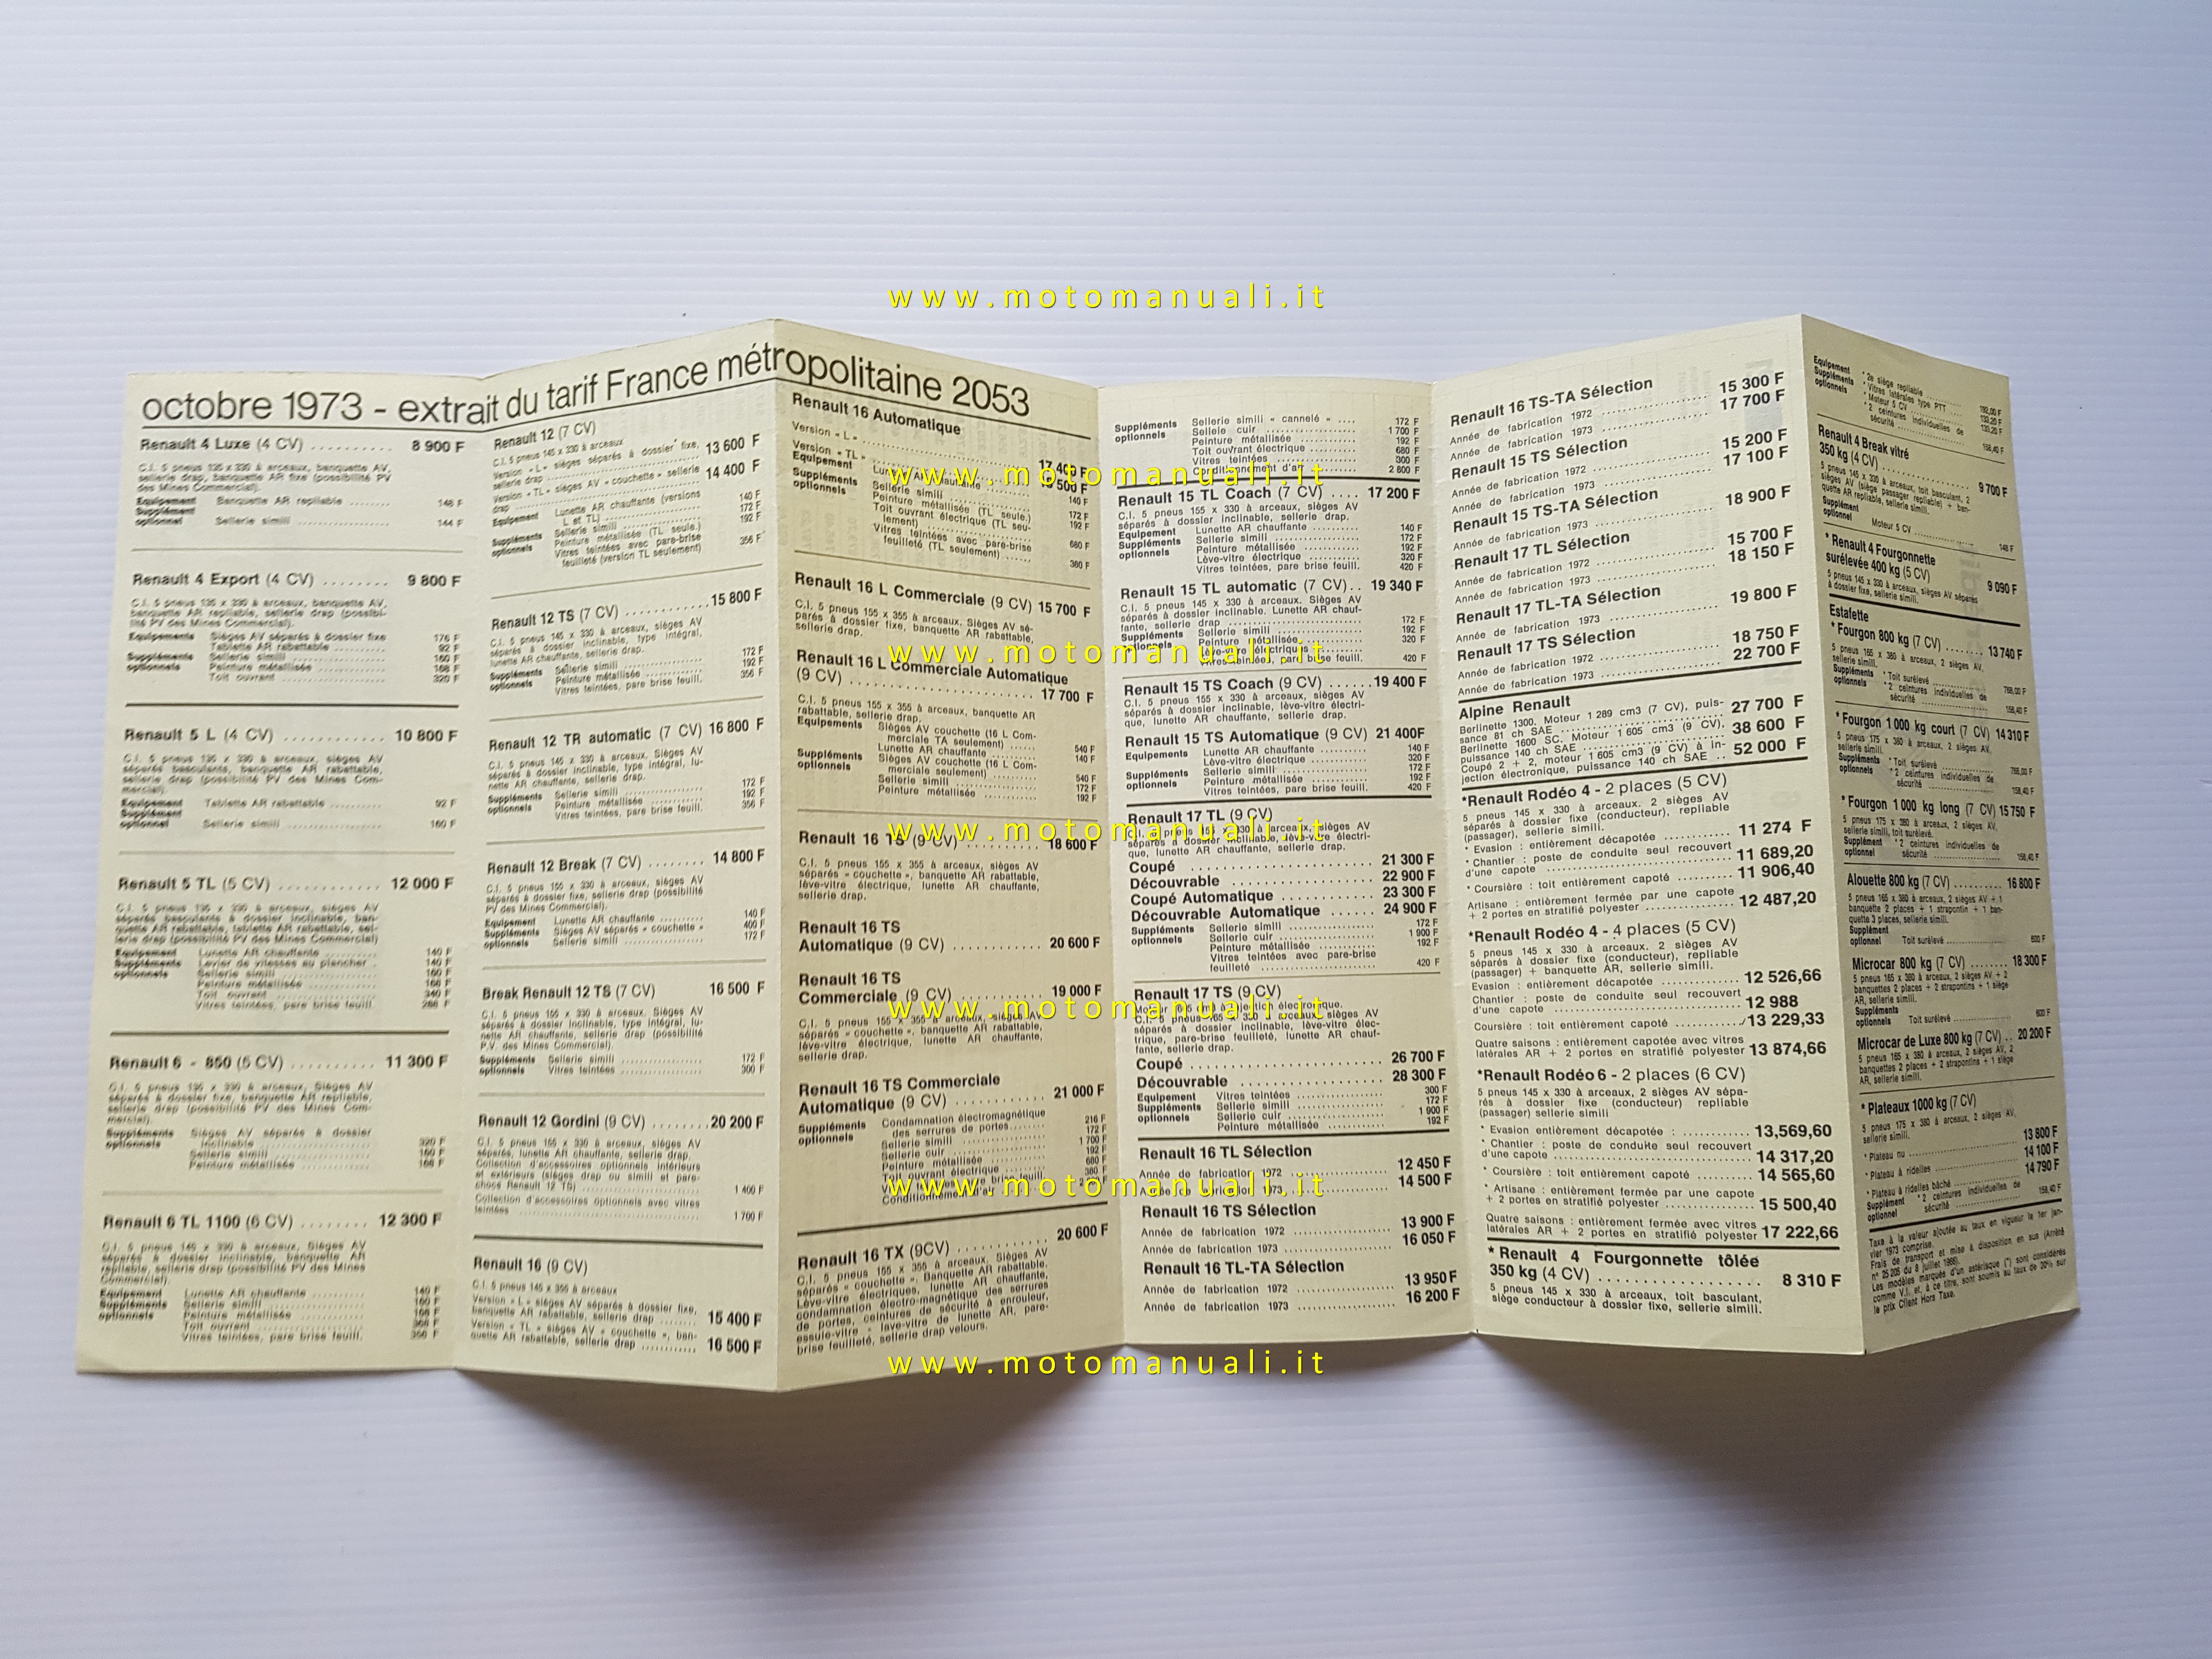 octobre 1973 - extrait du tarif France métropolitaine 2053
Renault 4 Luxe (4 CV) .......... 8 900 F
C.I. 5 pneus 135 x 330 à arceaux, banquette AV,
sellerie drap, banquette AR fixe (possibilité PV
des Mines Commercial).
Equipement Banquette AR repliable ........ 148 F
Supplément
optionnel Sellerie simili ........ 144 F
Renault 4 Export (4 CV) ........ 9 800 F
C.I. 5 pneus 135 x 330 à arceaux, banquette AV,
banquette AR repliable, sellerie drap (possibi-
lité PV des Mines Commercial).
Equipements Sièges AV séparés à dossier fixe 176 F
Tablette AR rabattable ........ 92 F
Suppléments Sellerie simili ........ 160 F
optionnels Peinture métallisée ........ 168 F
Toit ouvrant ........ 320 F
Renault 5 L (4 CV) ............ 10 800 F
C.I. 5 pneus 135 x 330 à arceaux, sièges AV
séparés basculants, banquette AR rabattable,
sellerie drap (possibilité PV des Mines Com-
mercial).
Equipement Tablette AR rabattable ........ 92 F
Supplément
optionnel Sellerie simili ........ 160 F
Renault 5 TL (5 CV) ............ 12 000 F
C.I. 5 pneus 135 x 330 à arceaux, sièges AV
séparés basculants à dossier inclinable, ban-
quette AR rabattable, tablette AR rabattable, sel-
lerie drap (possibilité PV des Mines Commercial)
Equipement Lunette AR chauffante ........ 140 F
Suppléments Levier de vitesses au plancher . 140 F
optionnels Sellerie simili ........ 160 F
Peinture métallisée ........ 168 F
Toit ouvrant ........ 340 F
Vitres teintées, pare brise feuill. 288 F
Renault 6 - 850 (5 CV) .......... 11 300 F
C.I. 5 pneus 135 x 330 à arceaux, Sièges AV
séparés à dossier fixe, banquette AR repliable,
sellerie drap (possibilité PV des Mines Com-
mercial).
Suppléments Sièges AV séparés à dossier
optionnels inclinable ........ 320 F
Sellerie simili ........ 160 F
Peinture métallisée ........ 168 F
Renault 6 TL 1100 (6 CV) ........ 12 300 F
C.I. 5 pneus 145 x 330 à arceaux, Sièges AV
séparés à dossier inclinable, banquette AR
repliable, sellerie drap (possibilité PV des Mines
Commercial).
Equipement Lunette AR chauffante ........ 140 F
Suppléments Sellerie simili ........ 160 F
optionnels Peinture métallisée ........ 168 F
Toit ouvrant ........
Vitres teintées, pare brise feuill. 356 F
Renault 12 (7 CV)
C.I. 5 pneus 145 x 330 à arceaux
Version « L » sièges séparés à dossier fixe,
sellerie drap ........ 13 600 F
Version « TL » sièges AV « couchette » sellerie
drap ........ 14 400 F
Equipement Lunette AR chauffante (versions
L et TL) ........ 140 F
Suppléments Sellerie simili ........ 172 F
optionnels Peinture métallisée (TL seule.) 192 F
Vitres teintées avec pare-brise
feuilleté (version TL seulement) 356 F
Renault 12 TS (7 CV) ............ 15 800 F
C.I. 5 pneus 145 x 330 à arceaux, sièges AV
séparés à dossier inclinable, type intégral,
lunette AR chauffante, sellerie drap.
Suppléments Sellerie simili ........ 172 F
optionnels Peinture métallisée ........ 192 F
Vitres teintées, pare brise feuill. 356 F
Renault 12 TR automatic (7 CV) 16 800 F
C.I. 5 pneus 145 x 330 à arceaux. Sièges AV
séparés à dossier inclinable, type intégral, lu-
nette AR chauffante, sellerie drap.
Suppléments Sellerie simili ........ 172 F
optionnels Peinture métallisée ........ 192 F
Vitres teintées, pare brise feuill. 356 F
Renault 12 Break (7 CV) ........ 14 800 F
C.I. 5 pneus 155 x 330 à arceaux, sièges AV
séparés à dossier fixe, sellerie drap (possibilité
PV des Mines Commercial).
Equipement Lunette AR chauffante ........ 140 F
Suppléments Sièges AV séparés « couchette » 400 F
optionnels Sellerie simili ........ 172 F
Break Renault 12 TS (7 CV) 16 500 F
C.I. 5 pneus 155 x 330 à arceaux. Sièges AV
séparés à dossier inclinable, type intégral, lu-
nette AR chauffante, sellerie drap (possibilité
P.V. des Mines Commercial).
Suppléments Sellerie simili ........ 172 F
optionnels Vitres teintées ........ 300 F
Renault 12 Gordini (9 CV) ........ 20 200 F
C.I. 5 pneus 155 x 330 à arceaux, sièges AV
séparés, lunette AR chauffante, sellerie drap.
Collection d'accessoires optionnels intérieurs
et extérieurs (sièges drap ou simili et pare-
chocs Renault 12 TS) ........ 1 400 F
Collection d'accessoires optionnels avec vitres
teintées ........ 1 700 F
Renault 16 (9 CV)
C.I. 5 pneus 145 x 355 à arceaux
Version « L » sièges AV séparés à dossier fixe,
banquette AR rabattable, sellerie drap ........ 15 400 F
Version « TL » sièges AV « couchette », ban-
quette AR rabattable, sellerie drap ........ 16 500 F
Renault 16 Automatique
Version « L » ........ 17 400 F
Version « TL » ........ 18 500 F
Equipement Lunette AR chauffante ........ 140 F
Suppléments Sellerie simili ........ 172 F
optionnels Peinture métallisée (TL seule.) 192 F
Toit ouvrant électrique (TL seu-
lement) ........ 680 F
Vitres teintées avec pare-brise
feuilleté (TL seulement) ........ 360 F
Renault 16 L Commerciale (9 CV) 15 700 F
C.I. 5 pneus 155 x 355 à arceaux. Sièges AV sé-
parés à dossier fixe, banquette AR rabattable,
sellerie drap.
Renault 16 L Commerciale Automatique
(9 CV) ........ 17 700 F
C.I. 5 pneus 155 x 355 à arceaux, banquette AR
rabattable, sellerie drap.
Equipements Sièges AV couchette (16 L Com-
merciale TA seulement) ...... 540 F
Lunette AR chauffante ........ 140 F
Suppléments Sièges AV couchette (16 L Com-
optionnels merciale seulement) ........ 540 F
Sellerie simili ........ 172 F
Peinture métallisée ........ 192 F
Renault 16 TS (9 CV) .......... 18 600 F
C.I. 5 pneus 155 x 355 à arceaux, sièges AV
séparés « couchette », banquette AR rabattable,
lève-vitre électrique, lunette AR chauffante,
sellerie drap.
Renault 16 TS
Automatique (9 CV) ............ 20 600 F
Renault 16 TS
Commerciale (9 CV) ............ 19 000 F
C.I. 5 pneus 155 x 355 à arceaux, sièges AV
séparés « couchette », banquette AR rabattable,
lève-vitre électrique, lunette AR chauffante,
sellerie drap.
Renault 16 TS Commerciale
Automatique (9 CV) ............ 21 000 F
Suppléments Condamnation électromagnétique
optionnels des serrures de portes ........ 216 F
Sellerie simili ........ 172 F
Sellerie cuir ........ 1 700 F
Peinture métallisée ........ 192 F
Toit ouvrant électrique ........ 680 F
Vitres teintées, pare brise feuill. 360 F
Conditionnement d'air ........
Renault 16 TX (9CV) ............ 20 600 F
C.I. 5 pneus 155 x 355 à arceaux, Sièges AV
séparés « couchette ». Banquette AR rabattable.
Lève-vitre électriques, lunette AR chauffante,
condamnation électro-magnétique des serrures
de portes, ceintures de sécurité à enrouleur,
essuie-vitre - lave-vitre de lunette AR, pare-
brise feuilleté, sellerie drap velours.
Suppléments Sellerie simili « cannelé » .... 172 F
optionnels Sellerie cuir ........ 1 700 F
Peinture métallisée ........ 192 F
Toit ouvrant électrique ........ 680 F
Vitres teintées ........ 300 F
Conditionnement d'air ........ 2 800 F
Renault 15 TL Coach (7 CV) .... 17 200 F
C.I. 5 pneus 155 x 330 à arceaux, sièges AV
séparés à dossier inclinable, sellerie drap.
Equipement Lunette AR chauffante ........ 140 F
Suppléments Sellerie simili ........ 172 F
optionnels Peinture métallisée ........ 192 F
Lève-vitre électrique ........ 320 F
Vitres teintées, pare brise feuill. 420 F
Renault 15 TL automatic (7 CV).. 19 340 F
C.I. 5 pneus 145 x 330 à arceaux. Sièges AV
séparés à dossier inclinable. Lunette AR chauf-
fante, sellerie drap
Suppléments Sellerie simili ........ 172 F
optionnels Peinture métallisée ........ 192 F
Lève-vitre électrique ........ 320 F
Vitres teintées, pare brise feuill. 420 F
Renault 15 TS Coach (9 CV) ...... 19 400 F
C.I. 5 pneus 155 x 330 à arceaux, sièges AV
séparés à dossier inclinable, lève-vitre électri-
que, lunette AR chauffante, sellerie drap.
Renault 15 TS Automatique (9 CV) 21 400F
Equipements Lunette AR chauffante ........ 140 F
Lève-vitre électrique ........ 320 F
Suppléments Sellerie simili ........ 172 F
optionnels Peinture métallisée ........ 192 F
Vitres teintées, pare brise feuill. 420 F
Renault 17 TL (9 CV)
C.I. 5 pneus 155 x 330 à arceaux, sièges AV
séparés à dossier inclinable, lève-vitre électri-
que, lunette AR chauffante, sellerie drap.
Coupé ........ 21 300 F
Découvrable ........ 22 900 F
Coupé Automatique ........ 23 300 F
Découvrable Automatique ...... 24 900 F
Suppléments Sellerie simili ........ 172 F
optionnels Sellerie cuir ........ 1 900 F
Peinture métallisée ........ 192 F
Vitres teintées avec pare-brise
feuilleté ........ 420 F
Renault 17 TS (9 CV)
C.I. 5 pneus 165 x 330 à arceaux, sièges AV
séparés à dossier inclinable, lève-vitre élec-
trique, pare-brise feuilleté, lunette AR chauf-
fante, sellerie drap.
Coupé ........ 26 700 F
Découvrable ........ 28 300 F
Equipement Vitres teintées ........ 300 F
Suppléments Sellerie simili ........ 172 F
optionnels Sellerie cuir ........ 1 900 F
Peinture métallisée ........ 192 F
Renault 16 TL Sélection
Année de fabrication 1972 ........ 12 450 F
Année de fabrication 1973 ........ 14 500 F
Renault 16 TS Sélection
Année de fabrication 1972 ........ 13 900 F
Année de fabrication 1973 ........ 16 050 F
Renault 16 TL-TA Sélection
Année de fabrication 1972 ........ 13 950 F
Année de fabrication 1973 ........ 16 200 F
Renault 16 TS-TA Sélection
Année de fabrication 1972 ........ 15 300 F
Année de fabrication 1973 ........ 17 700 F
Renault 15 TS Sélection
Année de fabrication 1972 ........ 15 200 F
Année de fabrication 1973 ........ 17 100 F
Renault 15 TS-TA Sélection
Année de fabrication 1973 ........ 18 900 F
Renault 17 TL Sélection
Année de fabrication 1972 ........ 15 700 F
Année de fabrication 1973 ........ 18 150 F
Renault 17 TL-TA Sélection
Année de fabrication 1973 ........ 19 800 F
Renault 17 TS Sélection
Année de fabrication 1972 ........ 18 750 F
Année de fabrication 1973 ........ 22 700 F
Alpine Renault
Berlinette 1300. Moteur 1 289 cm3 (7 CV), puis-
sance 81 ch SAE ........ 27 700 F
Berlinette 1600 SC. Moteur 1 605 cm3 (9 CV),
puissance 140 ch SAE ........ 38 600 F
Coupé 2 + 2, moteur 1 605 cm3 (9 CV) à in-
jection électronique, puissance 140 ch SAE .. 52 000 F
*Renault Rodéo 4 - 2 places (5 CV)
5 pneus 145 x 330 à arceaux. 2 sièges AV
séparés à dossier fixe (conducteur), repliable
(passager), sellerie simili.
* Evasion : entièrement décapotée ........ 11 274 F
* Chantier : poste de conduite seul recouvert
d'une capote ........ 11 689,20
* Coursière : toit entièrement capoté ........ 11 906,40
Artisane : entièrement fermée par une capote
+ 2 portes en stratifié polyester ........ 12 487,20
*Renault Rodéo 4 - 4 places (5 CV)
5 pneus 145 x 330 à arceaux. 2 sièges AV
séparés à dossier fixe (conducteur), repliable
(passager) + banquette AR, sellerie simili.
Evasion : entièrement décapotée ........ 12 526,66
Chantier : poste de conduite seul recouvert
d'une capote ........ 12 988
Coursière : toit entièrement capoté ........ 13 229,33
Quatre saisons : entièrement capotée avec vitres
latérales AR + 2 portes en stratifié polyester 13 874,66
*Renault Rodéo 6 - 2 places (6 CV)
5 pneus 145 x 330 à arceaux, 2 sièges AV sépa-
rés à dossier fixe (conducteur) repliable
(passager) sellerie simili
* Evasion entièrement décapotée : ........ 13,569,60
* Chantier : poste de conduite seul recouvert
d'une capote ........ 14 317,20
* Coursière : toit entièrement capoté ........ 14 565,60
* Artisane : entièrement fermée par une capote
+ 2 portes en stratifié polyester ........ 15 500,40
Quatre saisons : entièrement fermée avec vitres
latérales AR + 2 portes en stratifié polyester 17 222,66
* Renault 4 Fourgonnette tôlée
350 kg (4 CV) ........ 8 310 F
5 pneus 145 x 330 à arceaux, toit basculant,
siège conducteur à dossier fixe, sellerie simili.
Equipement * 2e siège repliable ........ 192,00 F
Suppléments * Vitres latérales type PTT ........ 133,20 F
optionnels * Moteur 5 CV ........ 133,20 F
* 2 ceintures individuelles de
sécurité ........ 158,40 F
Renault 4 Break vitré
350 kg (4 CV) ........ 9 700 F
5 pneus 145 x 330 à arceaux, toit basculant, 2
sièges AV (siège passager repliable) + ban-
quette AR repliable, sellerie simili.
Supplément
optionnel Moteur 5 CV ........ 148 F
* Renault 4 Fourgonnette
surélevée 400 kg (5 CV) 9 090 F
5 pneus 145 x 330 à arceaux, 2 sièges AV séparés
à dossier fixe, sellerie simili.
Estafette
* Fourgon 800 kg (7 CV) ........ 13 740 F
5 pneus 165 x 380 à arceaux, 2 sièges AV,
sellerie simili.
Suppléments * Toit surélevé ........ 768,00 F
optionnels * 2 ceintures individuelles de
sécurité ........ 158,40 F
* Fourgon 1 000 kg court (7 CV) 14 310 F
5 pneus 175 x 380 à arceaux, 2 sièges AV,
sellerie simili.
Suppléments * Toit surélevé ........ 768,00 F
optionnels * 2 ceintures individuelles de
sécurité ........ 158,40 F
* Fourgon 1 000 kg long (7 CV) 15 750 F
5 pneus 175 x 380 à arceaux, 2 sièges AV,
sellerie simili, toit surélevé.
Supplément * 2 ceintures individuelles de
optionnel sécurité ........ 158,40 F
Alouette 800 kg (7 CV) .......... 16 800 F
5 pneus 165 x 380 à arceaux, 2 sièges AV + 1
banquette 2 places + 1 strapontin + 1 ban-
quette 3 places, sellerie simili.
Supplément
optionnel Toit surélevé ........ 600 F
Microcar 800 kg (7 CV) .......... 18 300 F
5 pneus 165 x 380 à arceaux, 2 sièges AV + 2
banquettes 2 places + 2 strapontins + 1 siège
AR, sellerie simili.
Suppléments
optionnels Toit surélevé ........ 600 F
Microcar de Luxe 800 kg (7 CV) .. 20 200 F
5 pneus 165 x 380 à arceaux, 2 sièges AV, 2
banquettes 2 places + 2 strapontins + 1 siège
AR, sellerie simili.
* Plateaux 1000 kg (7 CV)
5 pneus 175 x 380 à arceaux, 2 sièges AV,
sellerie simili.
* Plateau nu ........ 13 800 F
* Plateau à ridelles ........ 14 100 F
* Plateau à ridelles bâché ........ 14 790 F
Supplément * 2 ceintures individuelles de
optionnel sécurité ........ 158,40 F
Taxe à la valeur ajoutée au taux en vigueur le 1er jan-
vier 1973 comprise.
Frais de transport et mise à disposition en sus (Arrêté
n° 25 205 du 8 juillet 1966).
Les modèles marqués d'un astérisque (*) sont considérés
comme V.I. et, à ce titre, sont soumis au taux de 20% sur
le prix Client Hors Taxe.
www.motomanuali.it
www.motomanuali.it
www.motomanuali.it
www.motomanuali.it
www.motomanuali.it
www.motomanuali.it
www.motomanuali.it